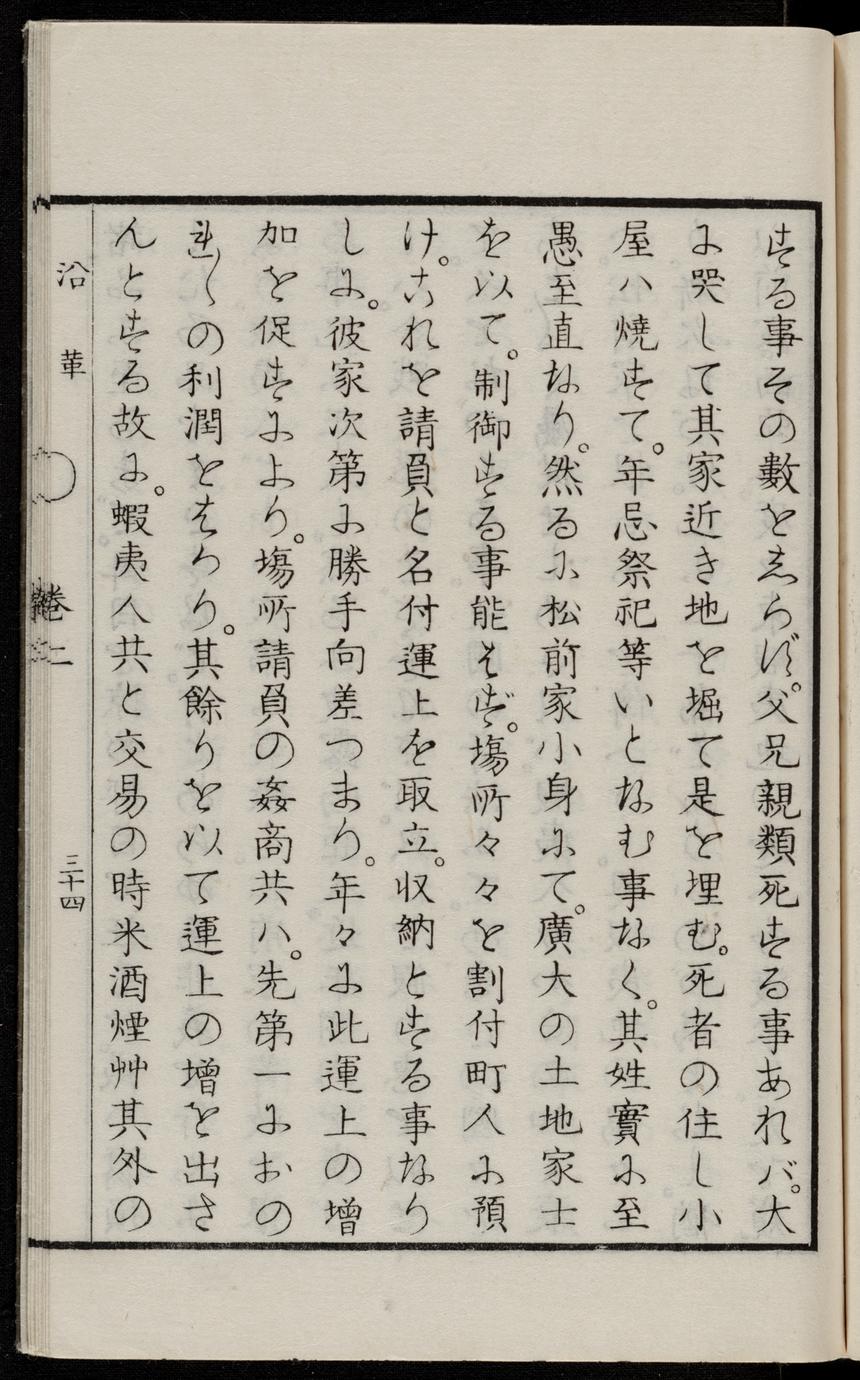 する事その數をしらず。父兄親類死する事あれバ。大
に哭して其家近き地を堀て是を埋む。死者の住し小
屋ハ燒すて。年忌祭祀等いとなむ事なく。其姓實に至
愚至直なり。然るに松前家小身にて。廣大の土地家士
を以て。制御する事能はず。塲所々々を割付町人に預
け。これを請負と名付運上を取立。収納とする事なり
しに。彼家次第に勝手向差つまり。年々に此運上の增
加を促すにより。塲所請負の姦商共ハ。先第一におの
れ〳〵の利潤をはかり。其餘りを以て運上の增を出さ
んとする故に。蝦夷人共と交易の時米酒煙艸其外の
沿革
卷二
三十四